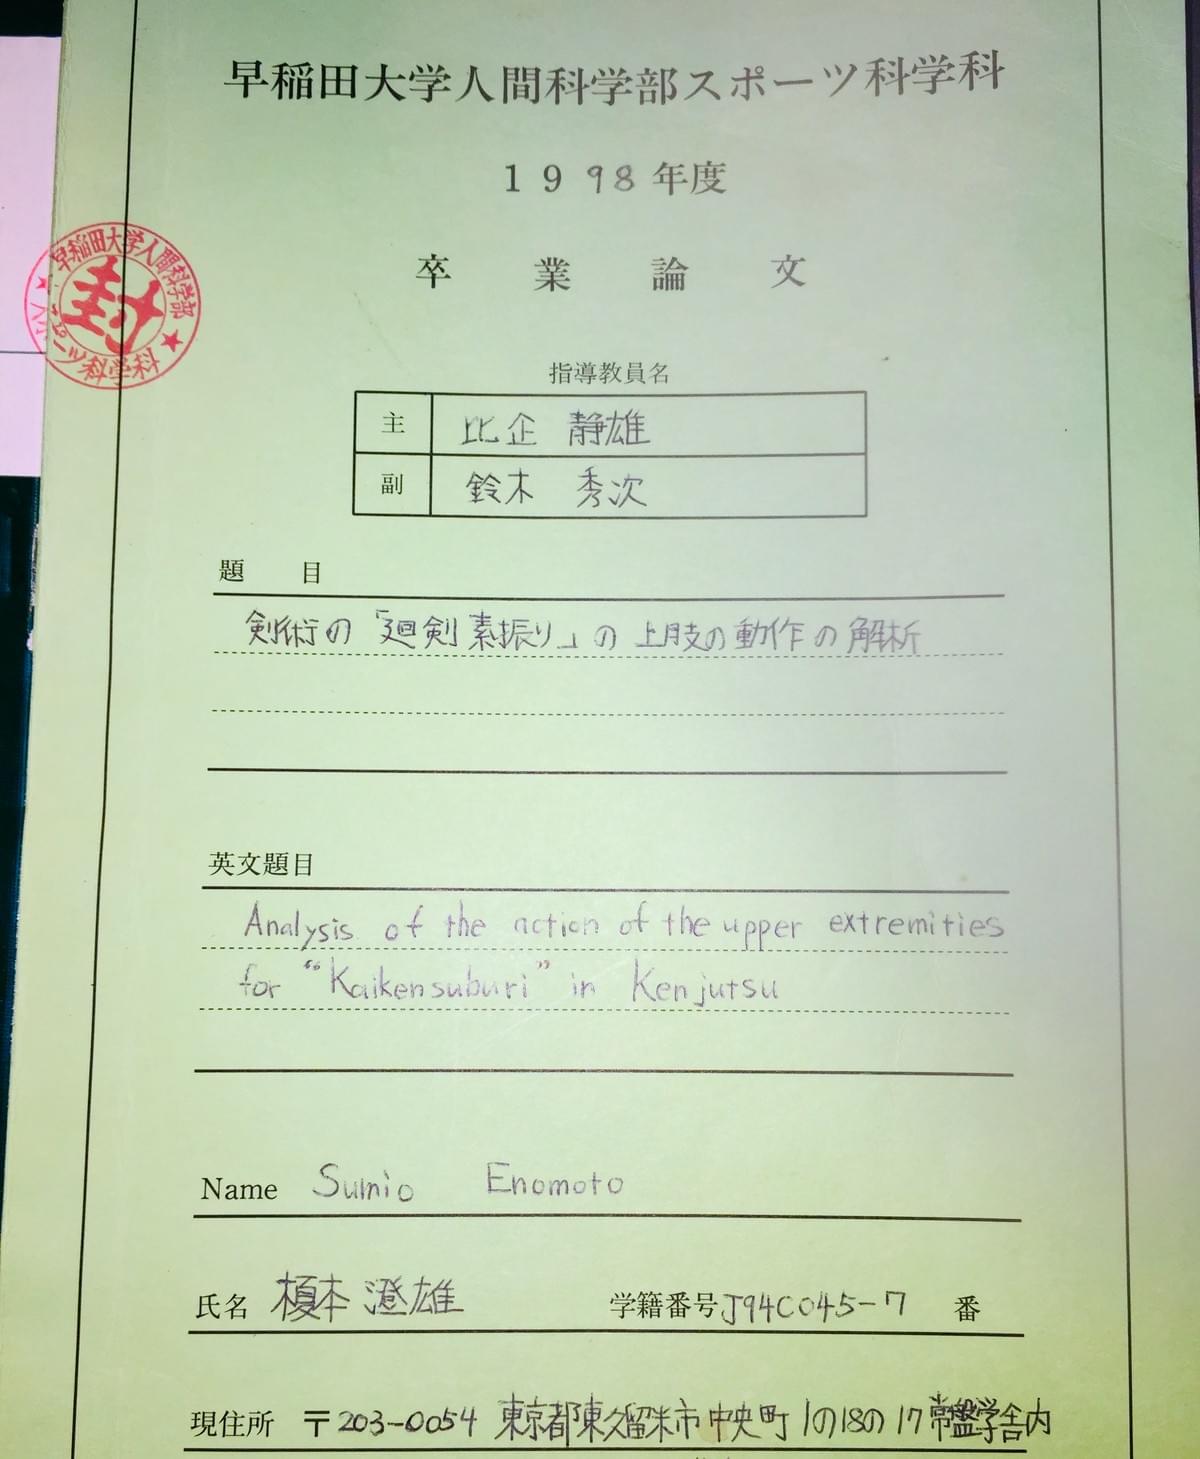 早稲田大学人間科学部スポーツ科学科
1998年度
卒業論文
早稲田大学人間科学部
封
スポーツ科学科
指導教員名
主 比企 静雄
副 鈴木 秀次
題目
剣術の「廻剣素振り」の上肢の動作の解析
英文題目
Analysis of the action of the upper extremities
for "Kaikensuburi" in Kenjutsu
Name Sumio Enomoto
氏名 榎本 澄雄 学籍番号 J94C045-7 番
現住所 〒203-0054 東京都東久留米市中央町1の18の17常盤学舎内